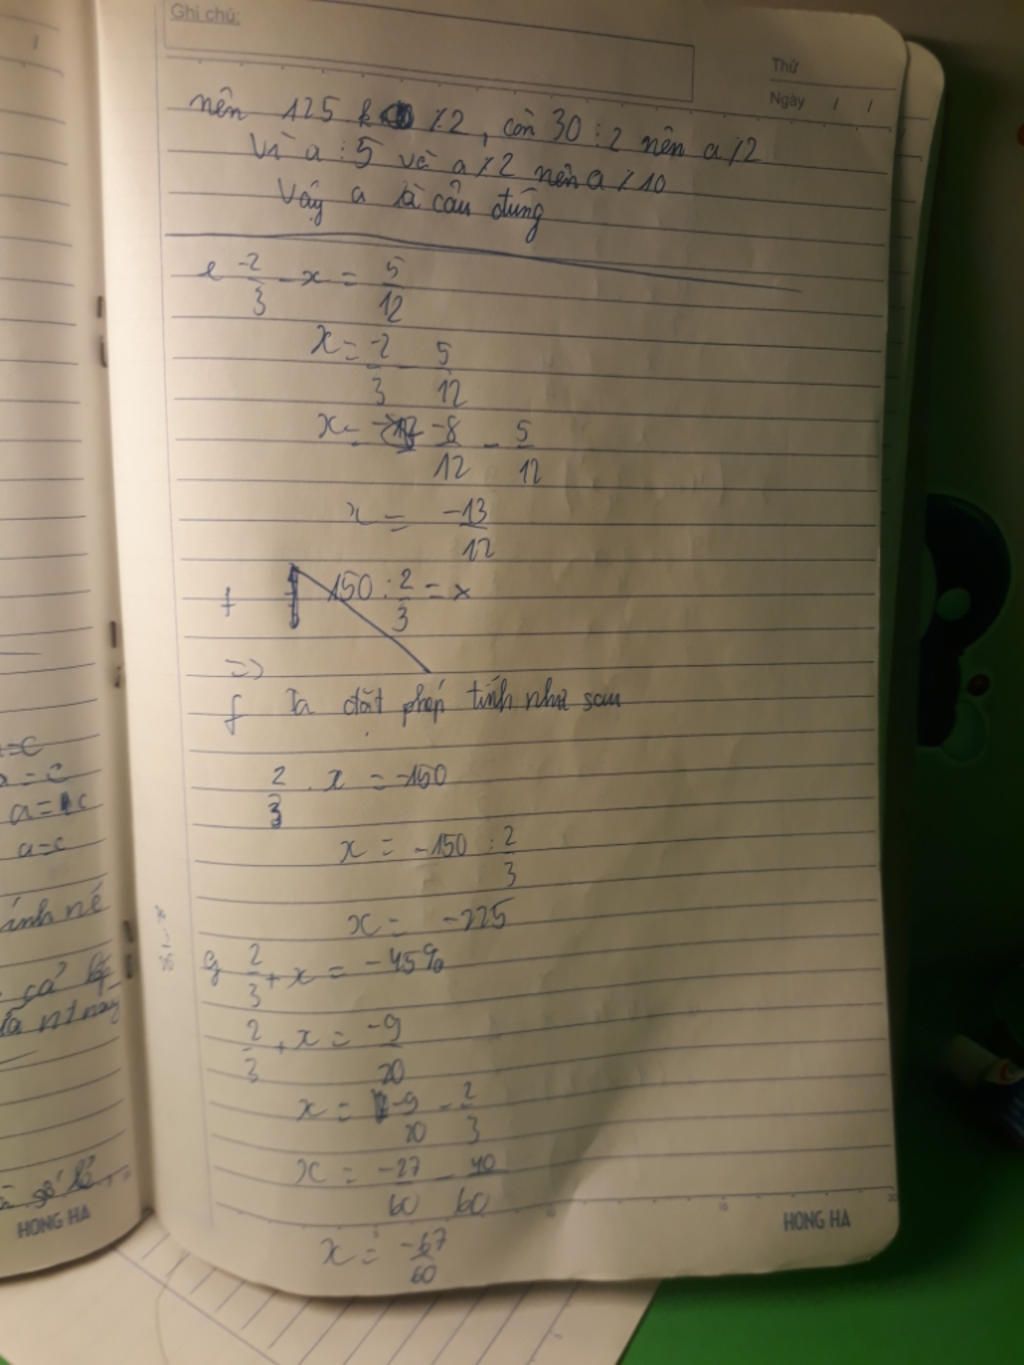 Ghi chú:
Thứ
Ngày / /
nên 125 k ⋮̸ 2, còn 30 ⋮ 2 nên a ⋮̸ 2
Vì a ⋮ 5 và a ⋮̸ 2 nên a ⋮̸ 10
Vậy a là câu đúng
e -2/3 - x = 5/12
x = -2/3 - 5/12
x = -8/12 - 5/12
x = -13/12
f 150 : 2/3 = x
=>
f Ta đặt phép tính như sau
2/3 . x = -150
x = -150 : 2/3
x = -225
g 2/3 + x = -45%
2/3 + x = -9/20
x = -9/20 - 2/3
x = -27/60 - 40/60
x = -67/60
HONG HA
a = c
a = c
a = c
a = c
ánh
cả
số lẻ
HONG HA